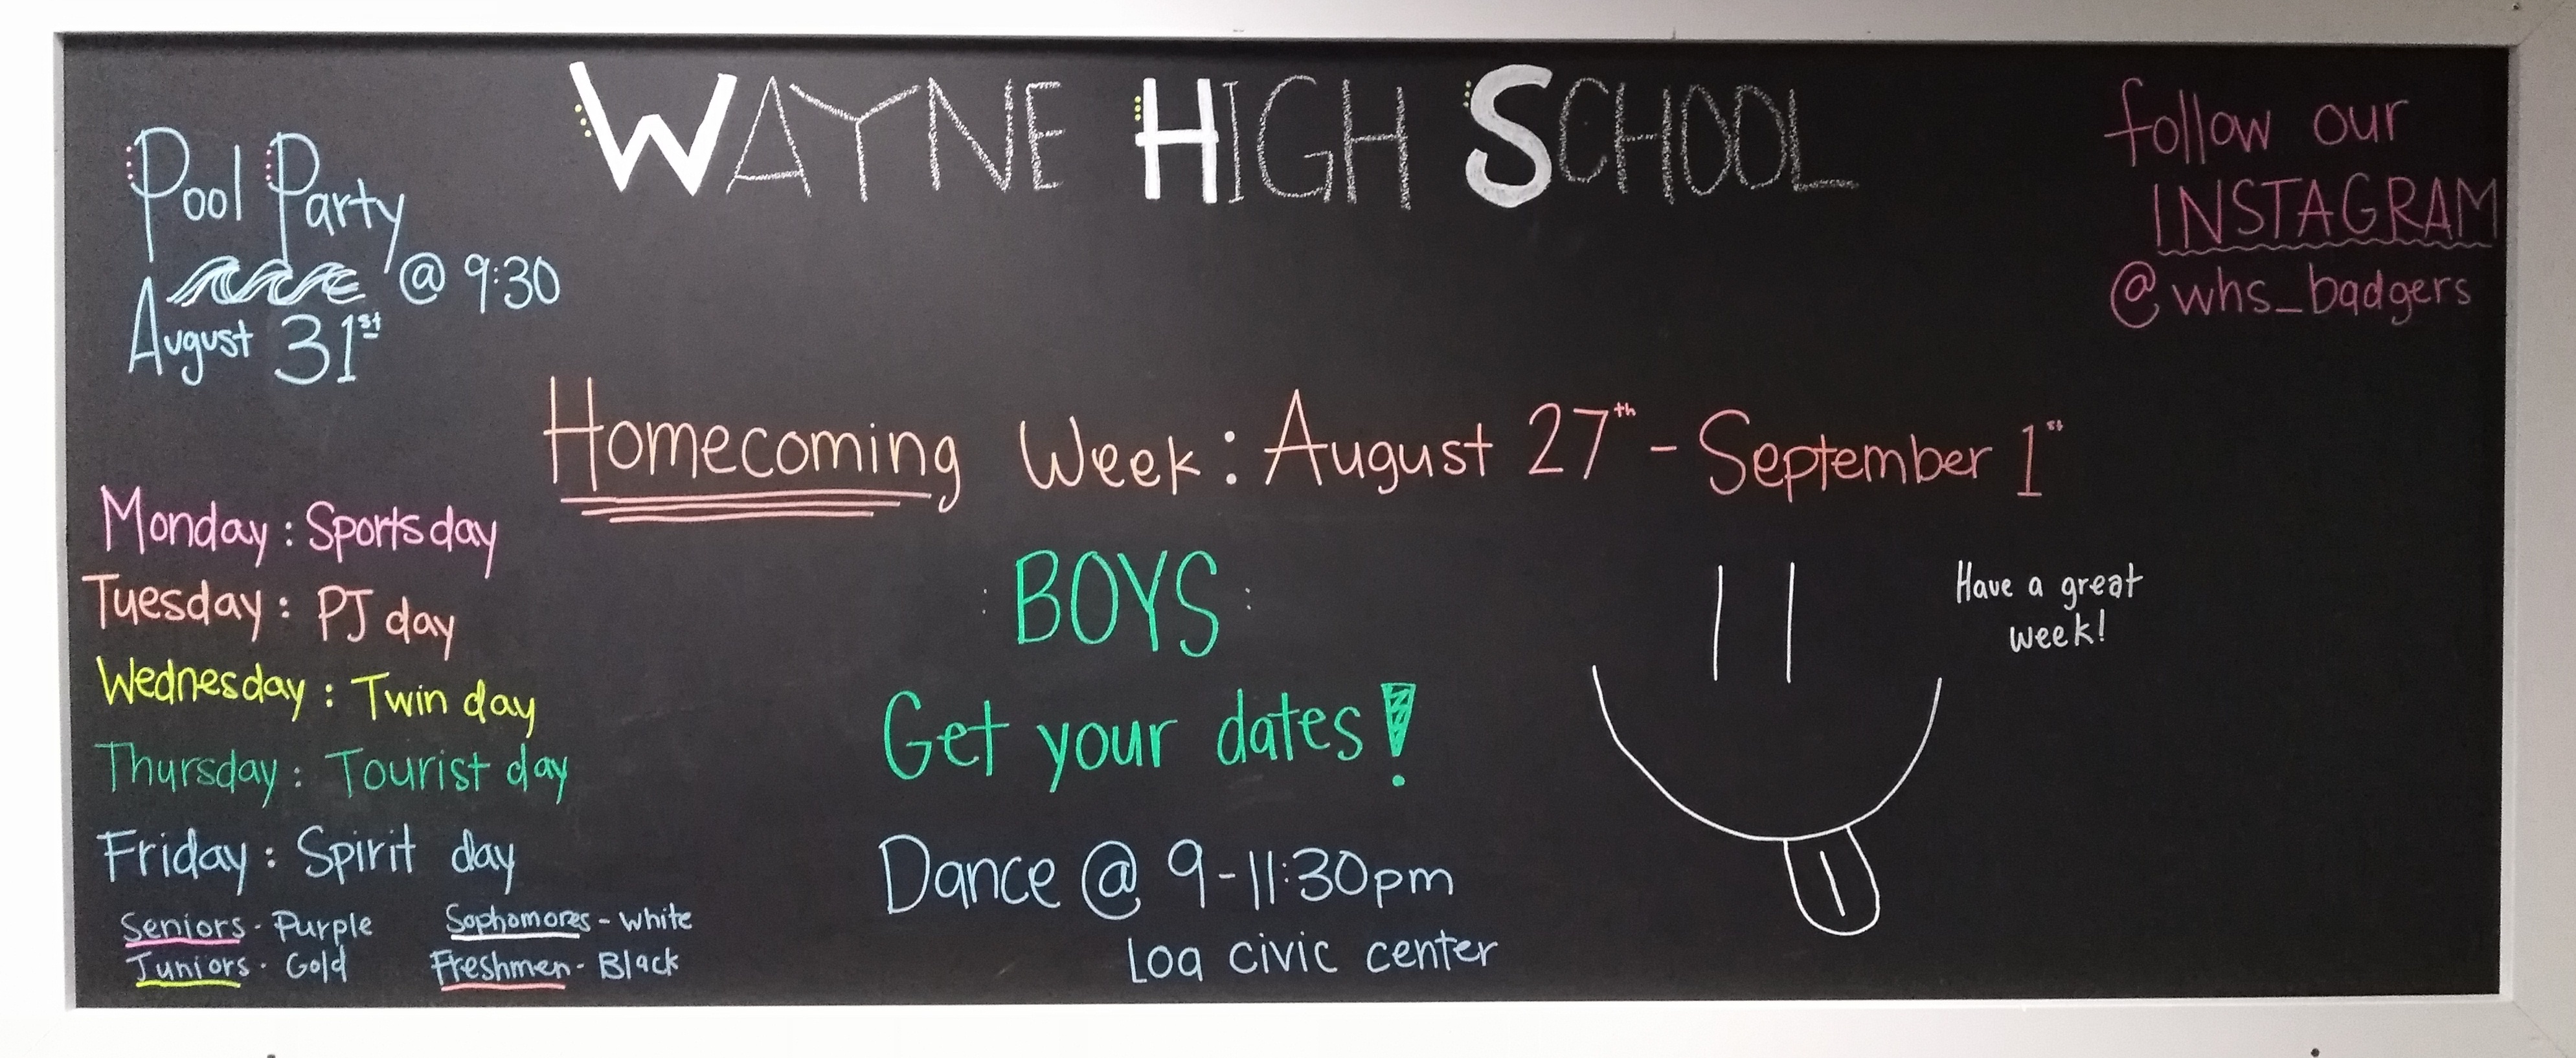 WAYNE HIGH SCHOOL
Pool Party
@ 9:30
August 31st
follow our
INSTAGRAM
@whs_badgers
Homecoming Week: August 27th - September 1st
Monday: Sportsday
Tuesday: PJ day
Wednesday: Twin day
Thursday: Tourist day
Friday: Spirit day
Seniors - Purple
Juniors - Gold
Sophomores - white
Freshmen - Black
: BOYS :
Get your dates!
Dance @ 9-11:30pm
Loa civic center
Have a great
week!